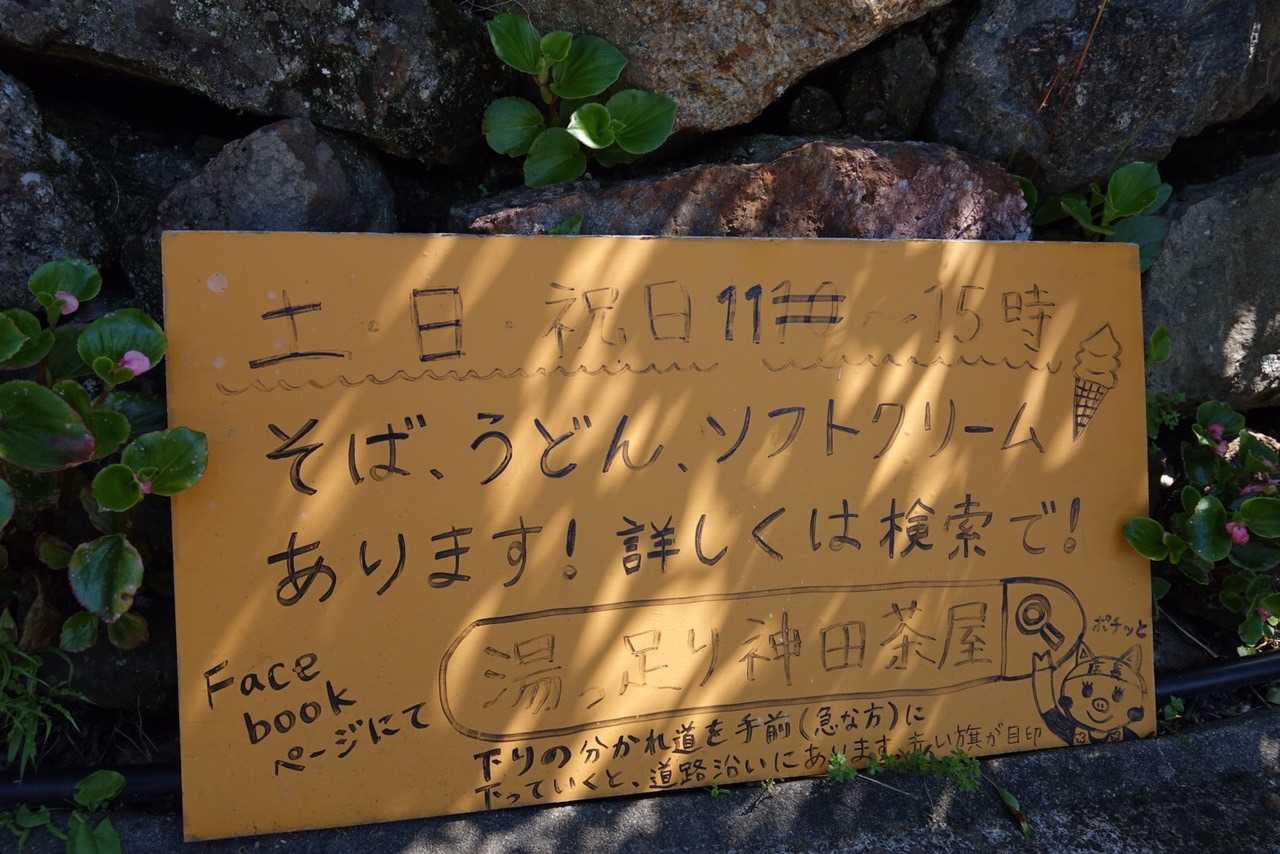 土・日・祝日11~~10~~〜15時
そば、うどん、ソフトクリーム
あります！詳しくは検索で！
湯っ足り神田茶屋
ポチッと
Face
book
ページにて
下りの分かれ道を手前(急な方)に
下っていくと、道路沿いにあります。赤い旗が目印